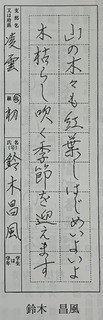 山の木々も紅葉しはじめいよいよ
木枯らし吹く季節を迎えます
凌雲
級
初
鈴木昌風
鈴木　昌風